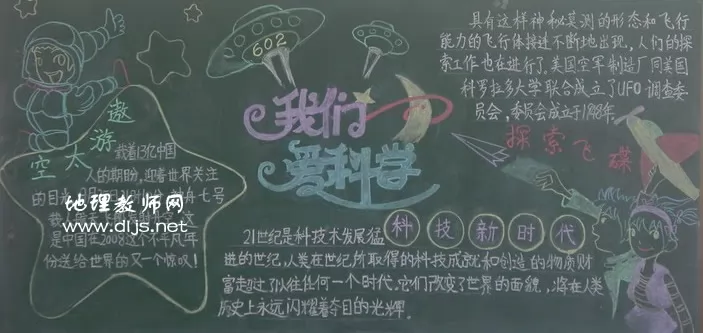 602
我们
爱科学
遨游太空
载着13亿中国
人的期盼,迎着世界关注
的目光
神舟七号
载人
这
是中国在2008这个不平凡年
份送给世界的又一个惊叹!
地理教师网
www.dljs.net
具有这样神秘莫测的形态和飞行
能力的飞行体接连不断地出现,人们的探
索工作也在进行了.美国空军制造厂同美国
科罗拉多大学联合成立了UFO调查委
员会,委员会成立于1948年.
探索飞碟
科技新时代
21世纪是科技术发展猛
进的世纪,人类在世纪所取得的科技成就和创造的物质财
富走超过了以往任何一个时代.它们改变了世界的面貌,将在人类
历史上永远闪耀着夺目的光辉.